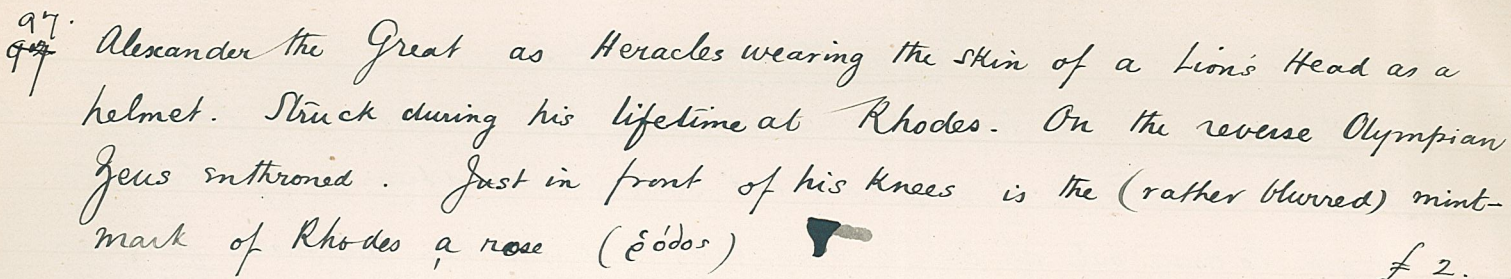 97.
97 Alexander the Great as Heracles wearing the skin of a Lion's Head as a
helmet. Struck during his lifetime at Rhodes. On the reverse Olympian
Zeus enthroned. Just in front of his knees is the (rather blurred) mint-
mark of Rhodes, a rose (ῥόδος)
£ 2.